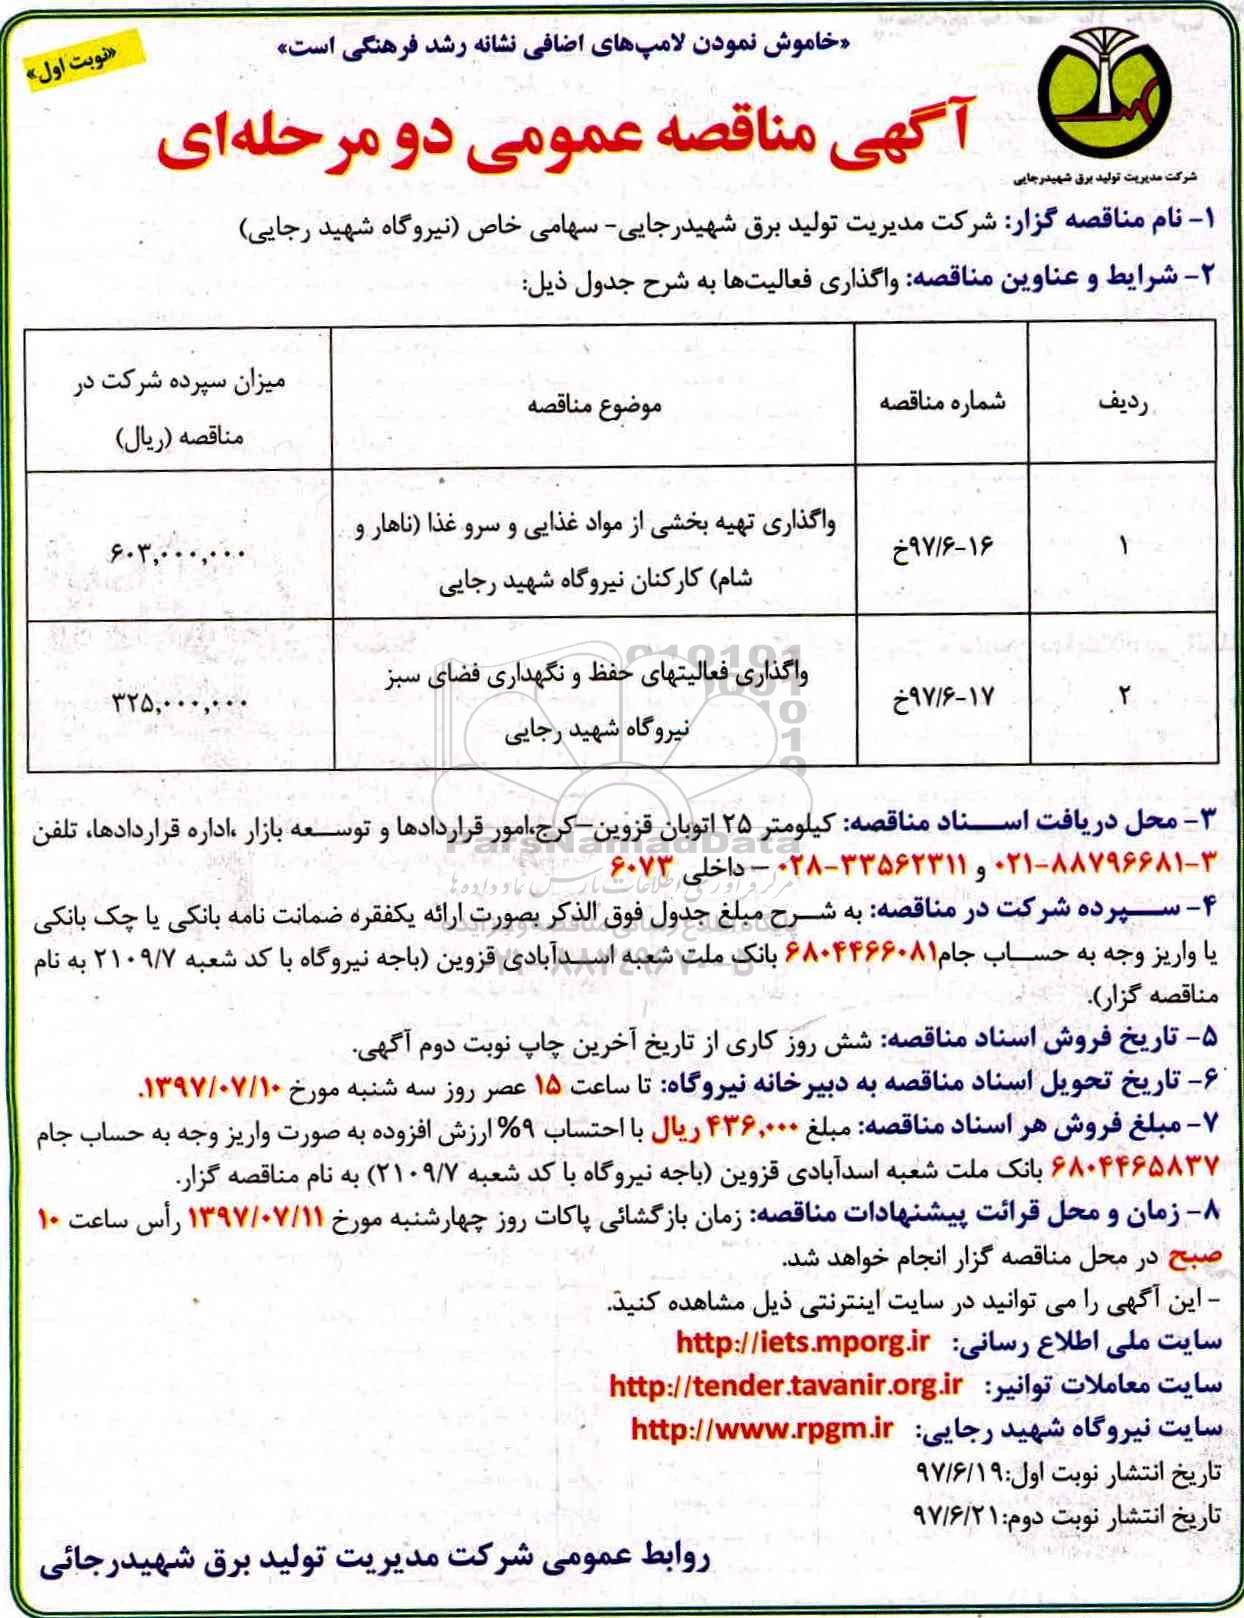 «خاموش نمودن لامپ‌های اضافی نشانه رشد فرهنگی است»
«نوبت اول»
آگهی مناقصه عمومی دو مرحله‌ای
شرکت مدیریت تولید برق شهیدرجایی
۱- نام مناقصه گزار: شرکت مدیریت تولید برق شهیدرجایی- سهامی خاص (نیروگاه شهید رجایی)
۲- شرایط و عناوین مناقصه: واگذاری فعالیت‌ها به شرح جدول ذیل:
ردیف
شماره مناقصه
موضوع مناقصه
میزان سپرده شرکت در
مناقصه (ریال)
۱
۹۷/۶-۱۶خ
واگذاری تهیه بخشی از مواد غذایی و سرو غذا (ناهار و
شام) کارکنان نیروگاه شهید رجایی
۶۰۳,۰۰۰,۰۰۰
۲
۹۷/۶-۱۷خ
واگذاری فعالیتهای حفظ و نگهداری فضای سبز
نیروگاه شهید رجایی
۳۲۵,۰۰۰,۰۰۰
۳- محل دریافت اسناد مناقصه: کیلومتر ۲۵ اتوبان قزوین–کرج،امور قراردادها و توسعه بازار ،اداره قراردادها، تلفن
۰۲۱-۸۸۷۹۶۶۸۱-۳ و ۰۲۸-۳۳۵۶۲۳۱۱ – داخلی ۶۰۷۳
۴- سپرده شرکت در مناقصه: به شرح مبلغ جدول فوق الذکر بصورت ارائه یکفقره ضمانت نامه بانکی یا چک بانکی
یا واریز وجه به حساب جام۶۸۰۴۴۶۶۰۸۱ بانک ملت شعبه اسدآبادی قزوین (باجه نیروگاه با کد شعبه ۲۱۰۹/۷ به نام
مناقصه گزار).
۵- تاریخ فروش اسناد مناقصه: شش روز کاری از تاریخ آخرین چاپ نوبت دوم آگهی.
۶- تاریخ تحویل اسناد مناقصه به دبیرخانه نیروگاه: تا ساعت ۱۵ عصر روز سه شنبه مورخ ۱۳۹۷/۰۷/۱۰.
۷- مبلغ فروش هر اسناد مناقصه: مبلغ ۴۳۶,۰۰۰ ریال با احتساب ۹% ارزش افزوده به صورت واریز وجه به حساب جام
۶۸۰۴۴۶۵۸۳۷ بانک ملت شعبه اسدآبادی قزوین (باجه نیروگاه با کد شعبه ۲۱۰۹/۷) به نام مناقصه گزار.
۸- زمان و محل قرائت پیشنهادات مناقصه: زمان بازگشائی پاکات روز چهارشنبه مورخ ۱۳۹۷/۰۷/۱۱ رأس ساعت ۱۰
صبح در محل مناقصه گزار انجام خواهد شد.
- این آگهی را می توانید در سایت اینترنتی ذیل مشاهده کنید.
سایت ملی اطلاع رسانی: http://iets.mporg.ir
سایت معاملات توانیر: http://tender.tavanir.org.ir
سایت نیروگاه شهید رجایی: http://www.rpgm.ir
تاریخ انتشار نوبت اول:۹۷/۶/۱۹
تاریخ انتشار نوبت دوم:۹۷/۶/۲۱
روابط عمومی شرکت مدیریت تولید برق شهیدرجائی
ParsNamadData